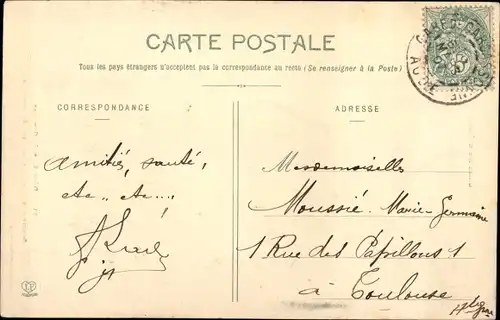 CARTE POSTALE
Tous les pays étrangers n'acceptent pas la correspondance au recto (Se renseigner à la Poste)
CORRESPONDANCE
ADRESSE
Amitiés, santé,
etc.. etc....
Mesdemoiselles
Moussié. Marie-Germaine
1 Rue des Papillons 1
à Toulouse
Hte Gne